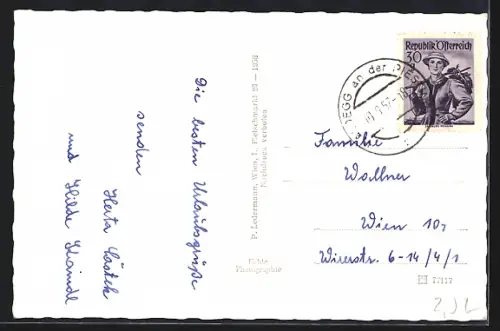 Die besten Urlaubsgrüße
senden
Herta
und Hilde
P. Ledermann, Wien, I., Fleischmarkt 20 — 1958
Nachdruck verboten
Echte
Photographie
Republik Österreich
30
EGG an der PIES
Familie
Wallner
Wien 10,
6-14/4/1